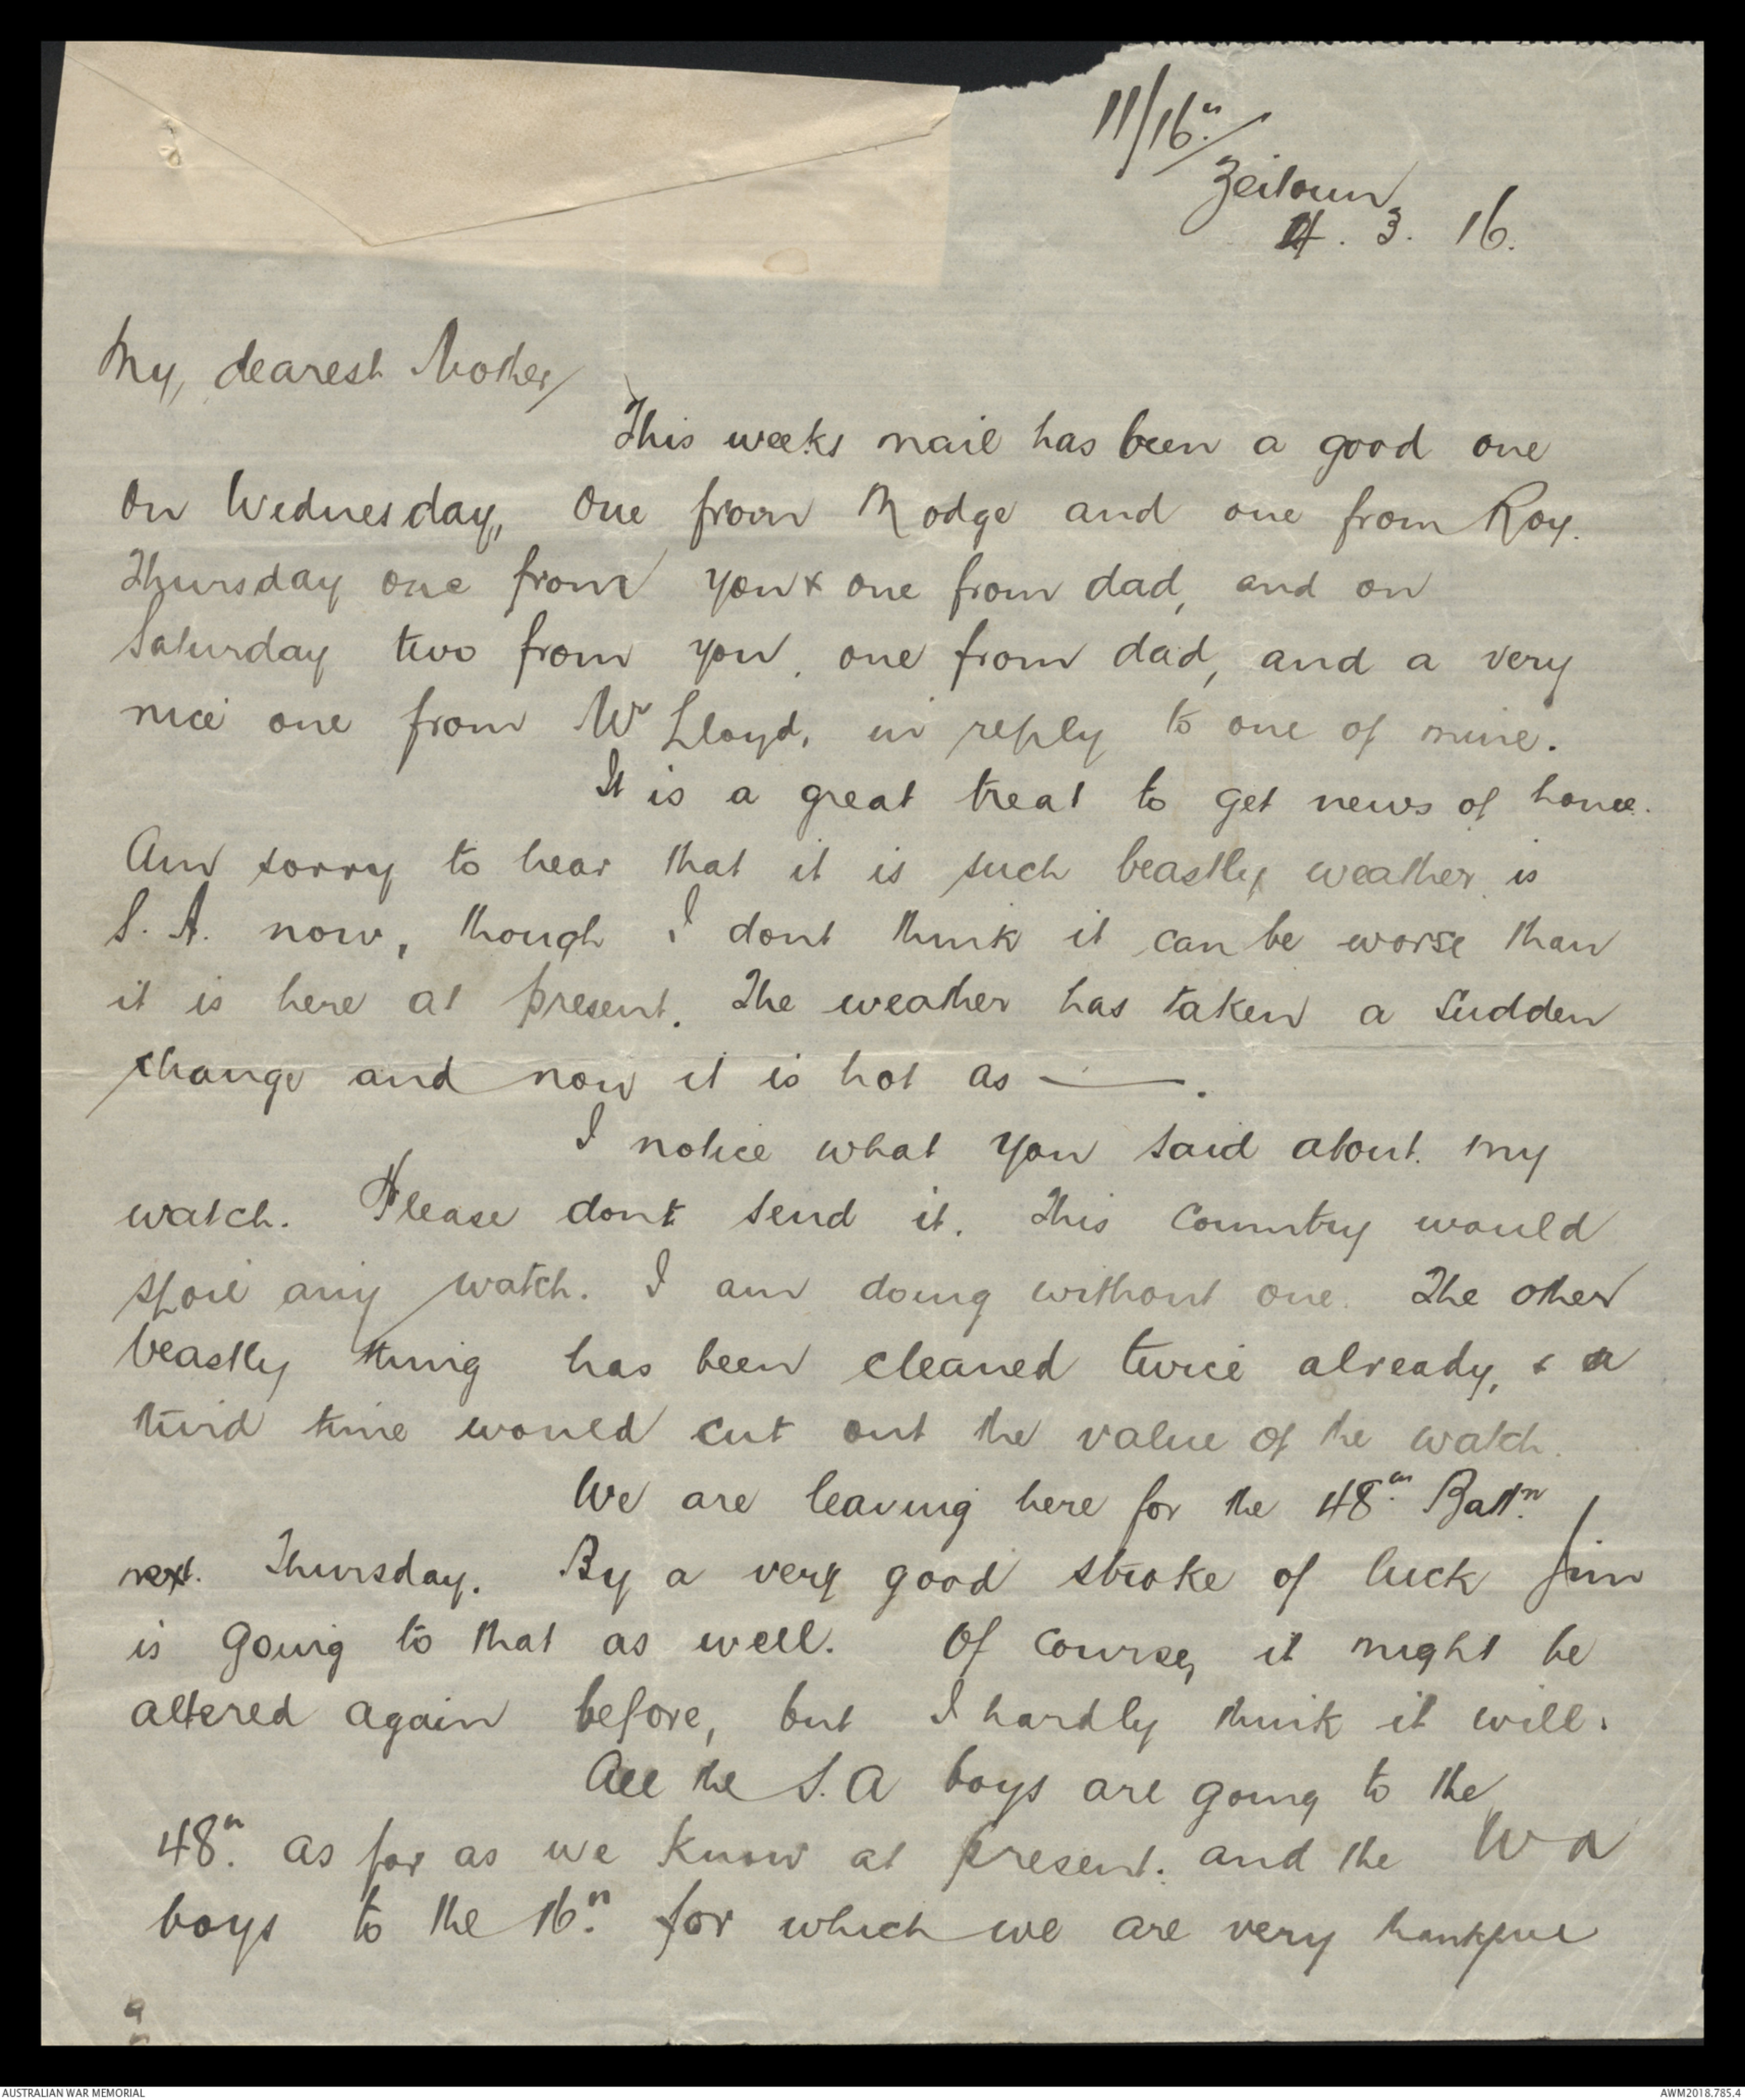 11/16th
Zeitoun
4. 3. 16.
My, dearest Mother/
This weeks mail has been a good one
On Wednesday, one from Modge and one from Roy.
Thursday one from you & one from dad, and on
Saturday two from you, one from dad, and a very
nice one from Mr Lloyd, in reply to one of mine.
It is a great treat to get news of home.
Am sorry to hear that it is such beastly weather is
S. A. now, though I dont think it can be worse than
it is here at present. The weather has taken a sudden
change and now it is hot as ——.
I notice what you said about my
watch. Please dont send it. This country would
spoil any watch. I am doing without one. The other
beastly thing has been cleaned twice already, & a
third time would cut out the value of the watch.
We are leaving here for the 48th Battn.
next Thursday. By a very good stroke of luck Jim
is going to that as well. Of course, it might be
altered again before, but I hardly think it will.
All the S.A boys are going to the
48th. as far as we know at present. and the W A
boys to the 16th. for which we are very thankful
AUSTRALIAN WAR MEMORIAL
AWM2018.785.4